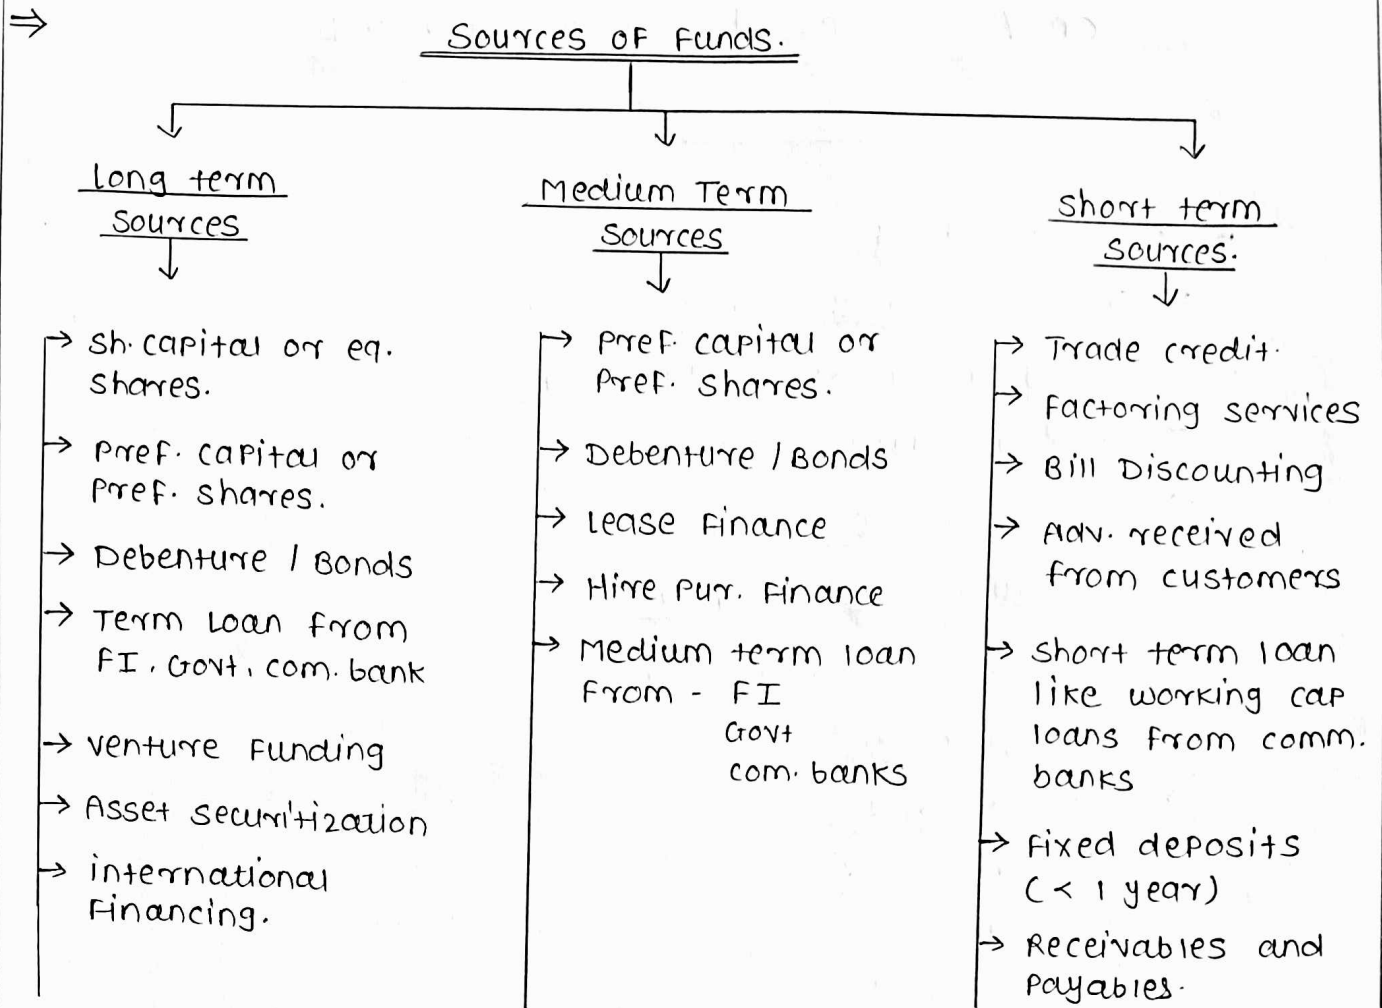 ⇒
Sources of Funds.
Long term
Sources
Sh. capital or eq.
shares.
Pref. capital or
Pref. shares.
Debenture / Bonds
Term Loan from
FI, Govt, com. bank
Venture Funding
Asset securitization
international
Financing.
Medium Term
Sources
Pref. capital or
Pref. shares.
Debenture / Bonds
Lease Finance
Hire Pur. Finance
Medium term loan
From - FI
Govt
com. banks
Short term
Sources:
Trade credit.
Factoring services
Bill Discounting
Adv. received
from customers
Short term loan
like working cap
loans from comm.
banks
Fixed deposits
(< 1 year)
Receivables and
Payables.